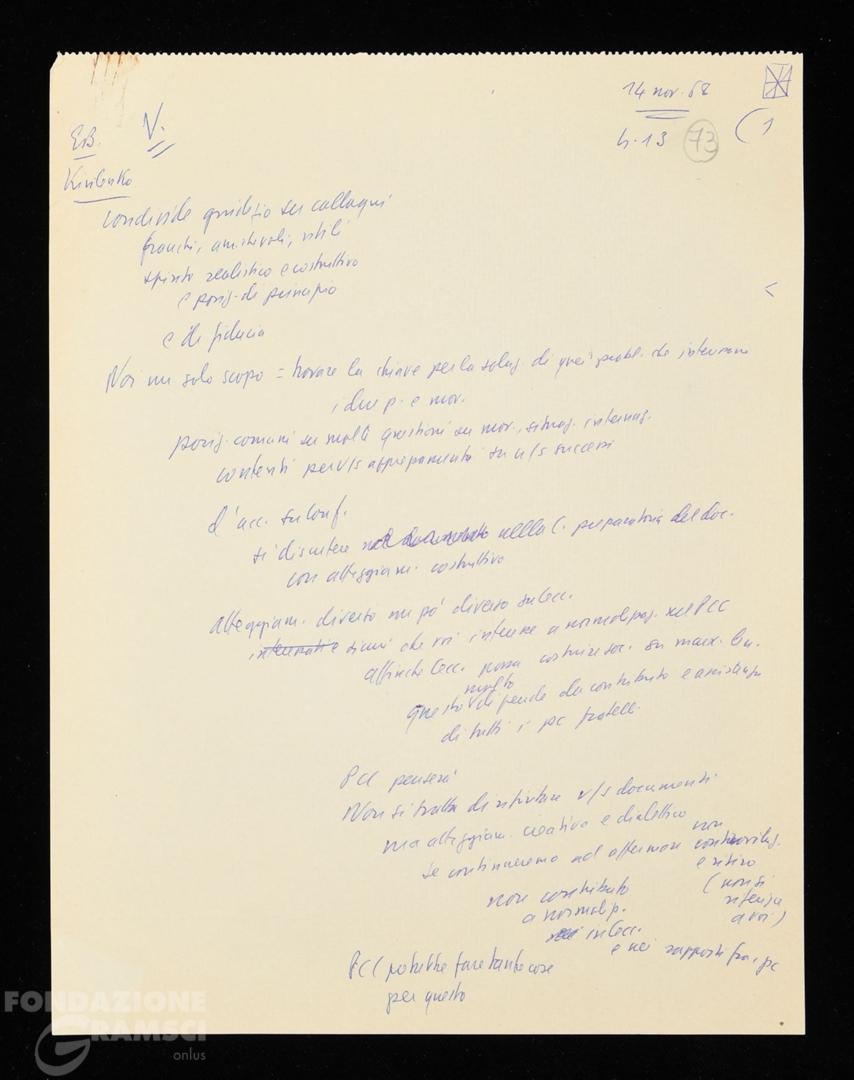 14 nov. 68
h. 13
73
( 1
E.B.
V.
Kirilenko
condivide giudizio su colloqui
franchi, amichevoli, utili
spirito realistico e costruttivo
e posiz. di principio
e di fiducia
Noi un solo scopo = trovare la chiave per la soluz. di quei probl. che interessano
i due p. e mov.
posiz. comuni su molte questioni su mov., situaz. internaz.
contenti per v/s apprezzamenti su n/s successi
d'acc. su conf.
si discutere nella C. preparatoria del doc.
con atteggiam. costruttivo
atteggiam. diverso un po' diverso su Cec.
che voi interesse a normalizzaz. nel PCC
affinché Cec. possa costruire soc. su marx. len.
questo molto dipende da contributo e assistenza
di tutti i pc fratelli
PCI penserà
Non si tratta di rifiutare v/s documenti
ma atteggiam. creativo e dialettico
se continueremo ad affermare non controriv.
e ritiro
(non si
riferisce
a voi)
non contributo
a normaliz.
in Cec.
e nei rapporti fra i pc
PCI potrebbe fare tante cose
per questo
FONDAZIONE
GRAMSCI
onlus